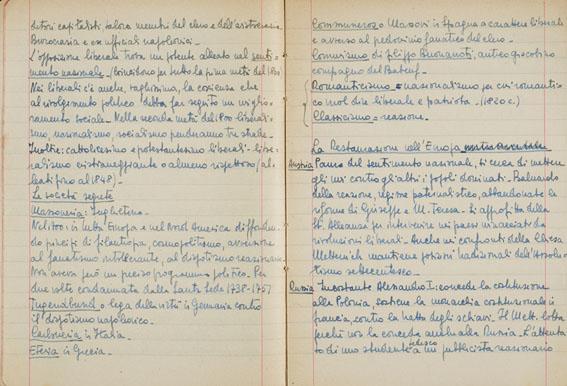 ditori capitalisti, talora membri del clero e dell'aristocrazia
Burocrazia e ex ufficiali napoleonici.
L'opposizione liberale trova un potente alleato nel senti-
mento nazionale. (Coincidono per tutta la prima metà del 1800
Nei liberali c'è anche, taglissima, la coscienza che
al rivolgimento politico debba far seguito un miglio-
ramento sociale. Nella seconda metà del 1800 liberali-
smo, nazionalismo, socialismo prenderanno tre strade.
Inoltre: cattolicesimo e protestantesimo liberali - libe-
ralismo cristianeggiante o almeno rispettoso (al-
leati fino al 1848).
Le società segrete
Massoneria: Inghilterra
Nel 1700: in tutta Europa e nel Nord America diffonden-
do principi di filantropia, cosmopolitismo, avversione
al fanatismo intollerante, al dispotismo reazionario.
Non aveva però un preciso programma politico. Per
due volte condannata dalla Santa Sede 1738-1751
Jugendbund o lega della virtù in Germania contro
il dispotismo napoleonico.
Carboneria in Italia.
Eteria in Grecia.
Comuneros Massoni in Spagna a carattere liberale
e avverso al predominio fanatico del clero.
Comunismo di Filippo Buonarroti, antico giacobino
compagno del Babeuf.
Romanticismo = nazionalismo per cui romanti-
co vuol dire liberale e patriota. (1820 c.)
Classicismo = reazione.
La Restaurazione nell'Europa
Austria Paura del sentimento nazionale, si cerca di metter
gli uni contro gli altri i popoli dominati. Baluardo
della reazione, regime paternalistico, abbandonate le
riforme di Giuseppe e M. Teresa. Si approfitta della
S. Alleanza per intervenire nei paesi minacciati da
rivoluzioni liberali. Anche nei confronti della Chiesa
Metternich mantiene posizioni tradizionali dell'Assolu-
tismo settecentesco.
Russia Incostante Alessandro I: concede la costituzione
alla Polonia, sostiene la monarchia costituzionale in
Francia, contro la tratta degli schiavi. Il Mett. lotta
perché non la conceda anche alla Russia. L'attenta-
to di uno studente tedesco a un pubblicista reazionario